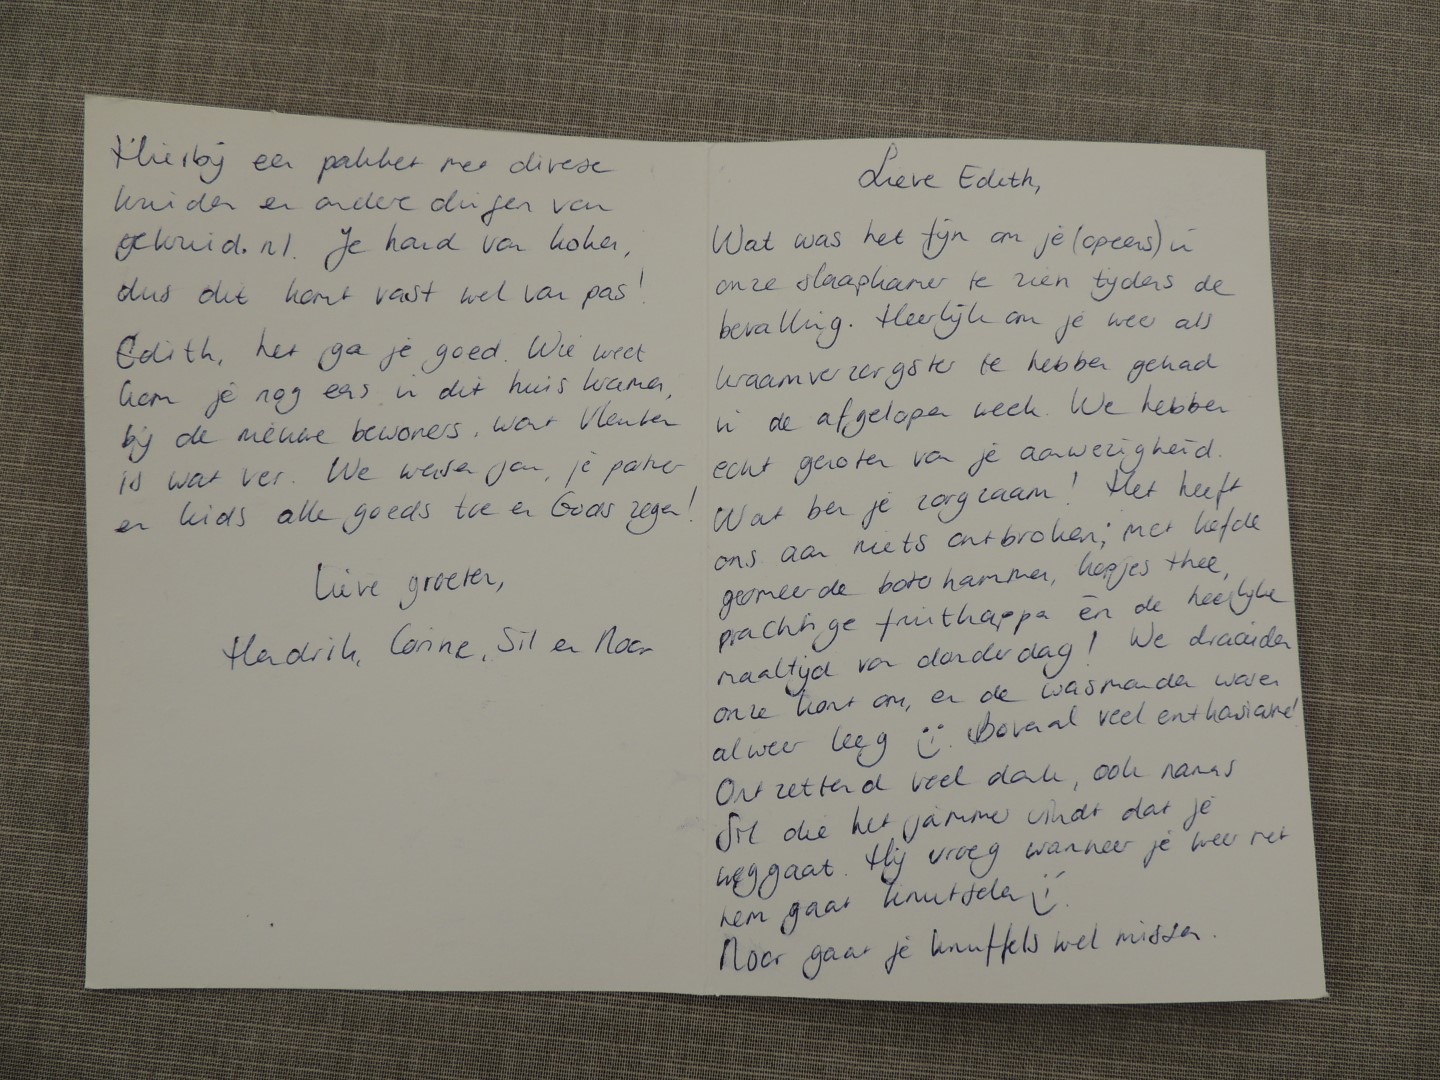 Lieve Edith,
Wat was het fijn om je (opeens) in
onze slaapkamer te zien tijdens de
bevalling. Heerlijk om je weer als
kraamverzorgster te hebben gehad
in de afgelopen week. We hebben
echt genoten van je aanwezigheid.
Wat ben je zorgzaam! Het heeft
ons aan niets ontbroken; met liefde
gesmeerde boterhammen, kopjes thee,
prachtige fruithapjes én de heerlijke
maaltijd van donderdag! We draaiden
onze kont om, en de wasmanden waren
alweer leeg :). Bovenal veel enthousiasme!
Ontzettend veel dank, ook namens
Sil die het jammer vindt dat je
weggaat. Hij vroeg wanneer je weer met
hem gaat knutselen :).
Noor gaat je knuffels wel missen.
Hierbij een pakket met diverse
kruiden en andere dingen van
gekruid.nl. Je houd van koken,
dus dit komt vast wel van pas!
Edith, het ga je goed. Wie weet
kom je nog eens in dit huis kramen,
bij de nieuwe bewoners, want Vleuten
is wat ver. We wensen jou, je partner
en kids alle goeds toe en Gods zegen!
Lieve groeten,
Hendrik, Corine, Sil en Noor